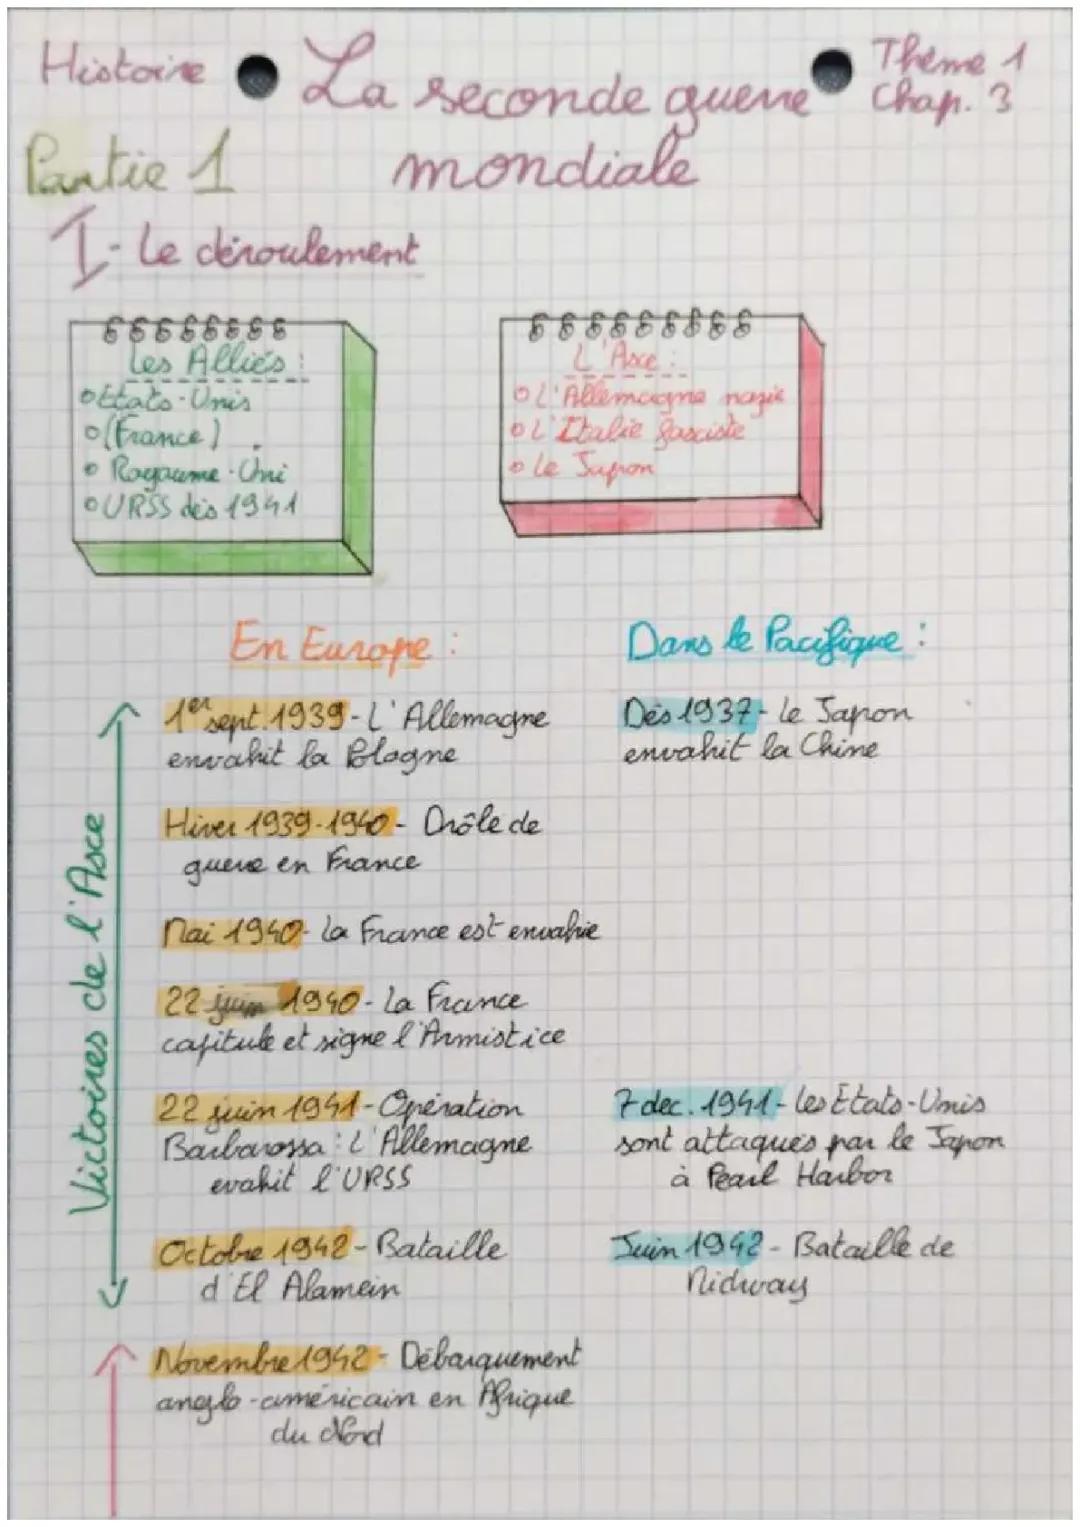 Histoire
La seconde guerre
mondiale
Thème 1
Chap. 3
Partie 1
I- Le déroulement
Les Alliés :
Etats-Unis
(France)
Royaume-Uni
URSS dès 1941
L'Axe :
L'Allemagne nazie
L'Italie fasciste
Le Japon
Victoires de l'Axe
En Europe :
1er sept. 1939 - L'Allemagne
envahit la Pologne
Hiver 1939-1940 - Drôle de
guerre en France
Mai 1940 - La France est envahie
22 juin 1940 - La France
capitule et signe l'Armistice
22 juin 1941 - Opération
Barbarossa : L'Allemagne
evahit l'URSS
Octobre 1942 - Bataille
d'El Alamein
Novembre 1942 - Débarquement
anglo-américain en Afrique
du Nord
Dans le Pacifique :
Dès 1937 - Le Japon
envahit la Chine
7 dec. 1941 - Les Etats-Unis
sont attaqués par le Japon
à Pearl Harbor
Juin 1942 - Bataille de
Midway